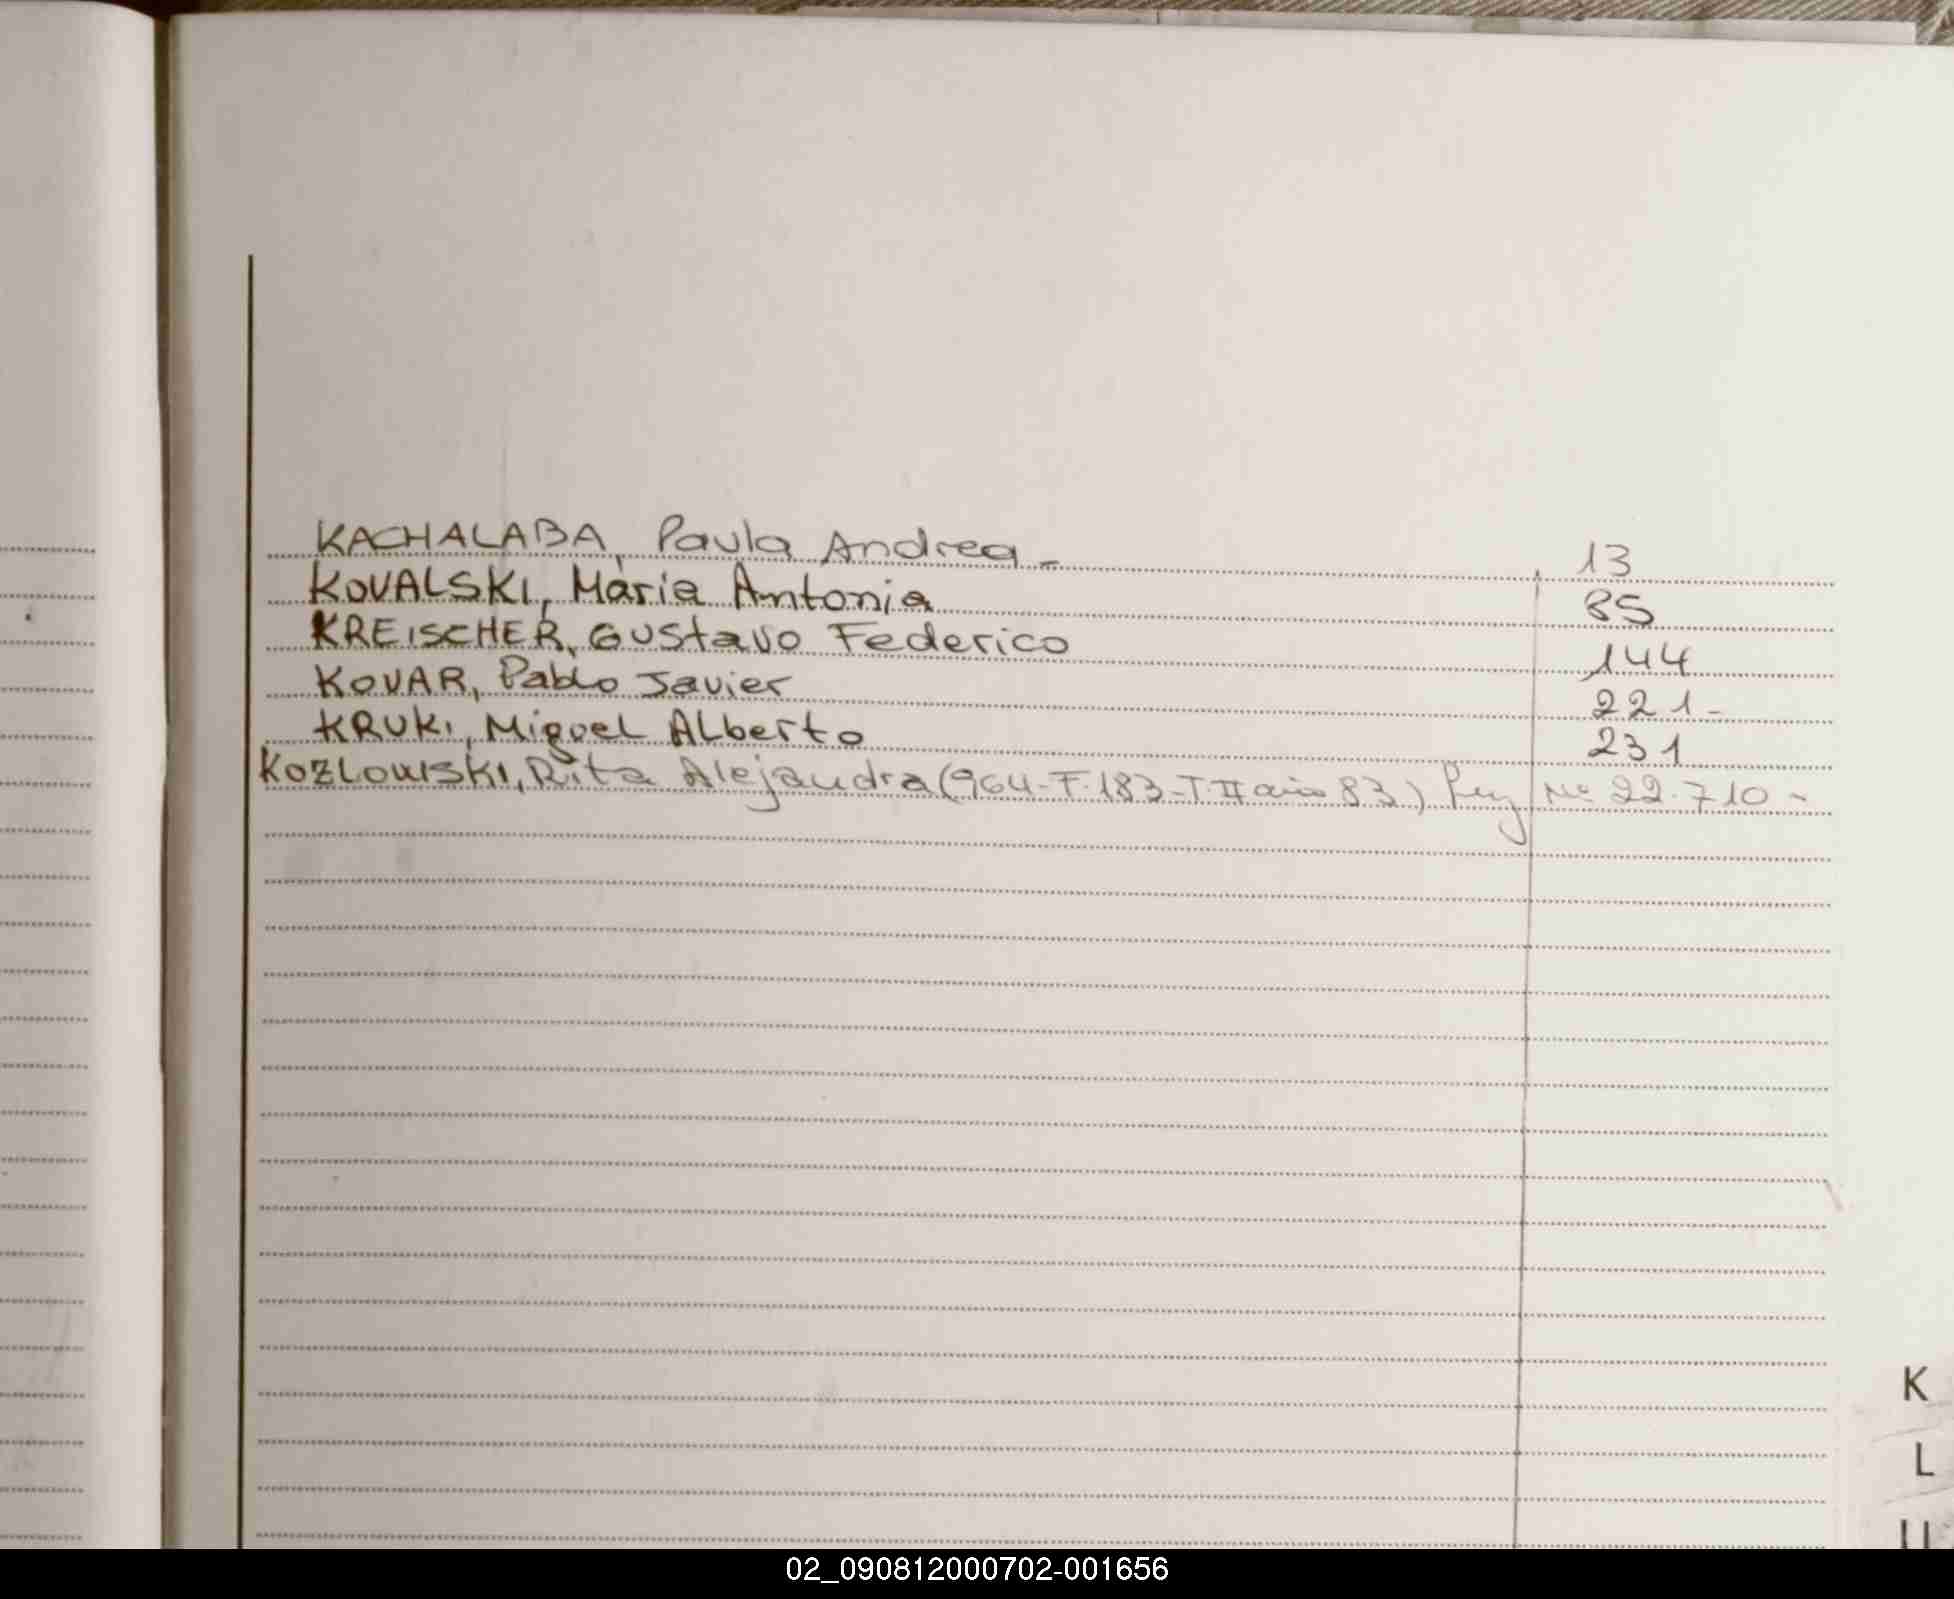 KACHALABA, Paula Andrea - 13
KOVALSKI, Maria Antonia 85
KREISCHER, Gustavo Federico 144
KOVAR, Pablo Javier 221-
KRUKI, Miguel Alberto 231
KOZLOWISKI, Rita Alejandra (964-F.183-T II año 83) Nº 22.710-
K
L
02_090812000702-001656